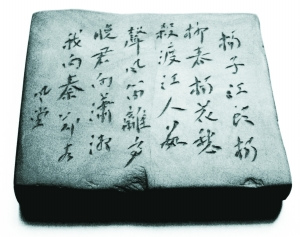 楊子江頭楊
柳春楊花愁
殺渡江人數
聲風笛離亭
晚君向瀟湘
我向秦鄭谷